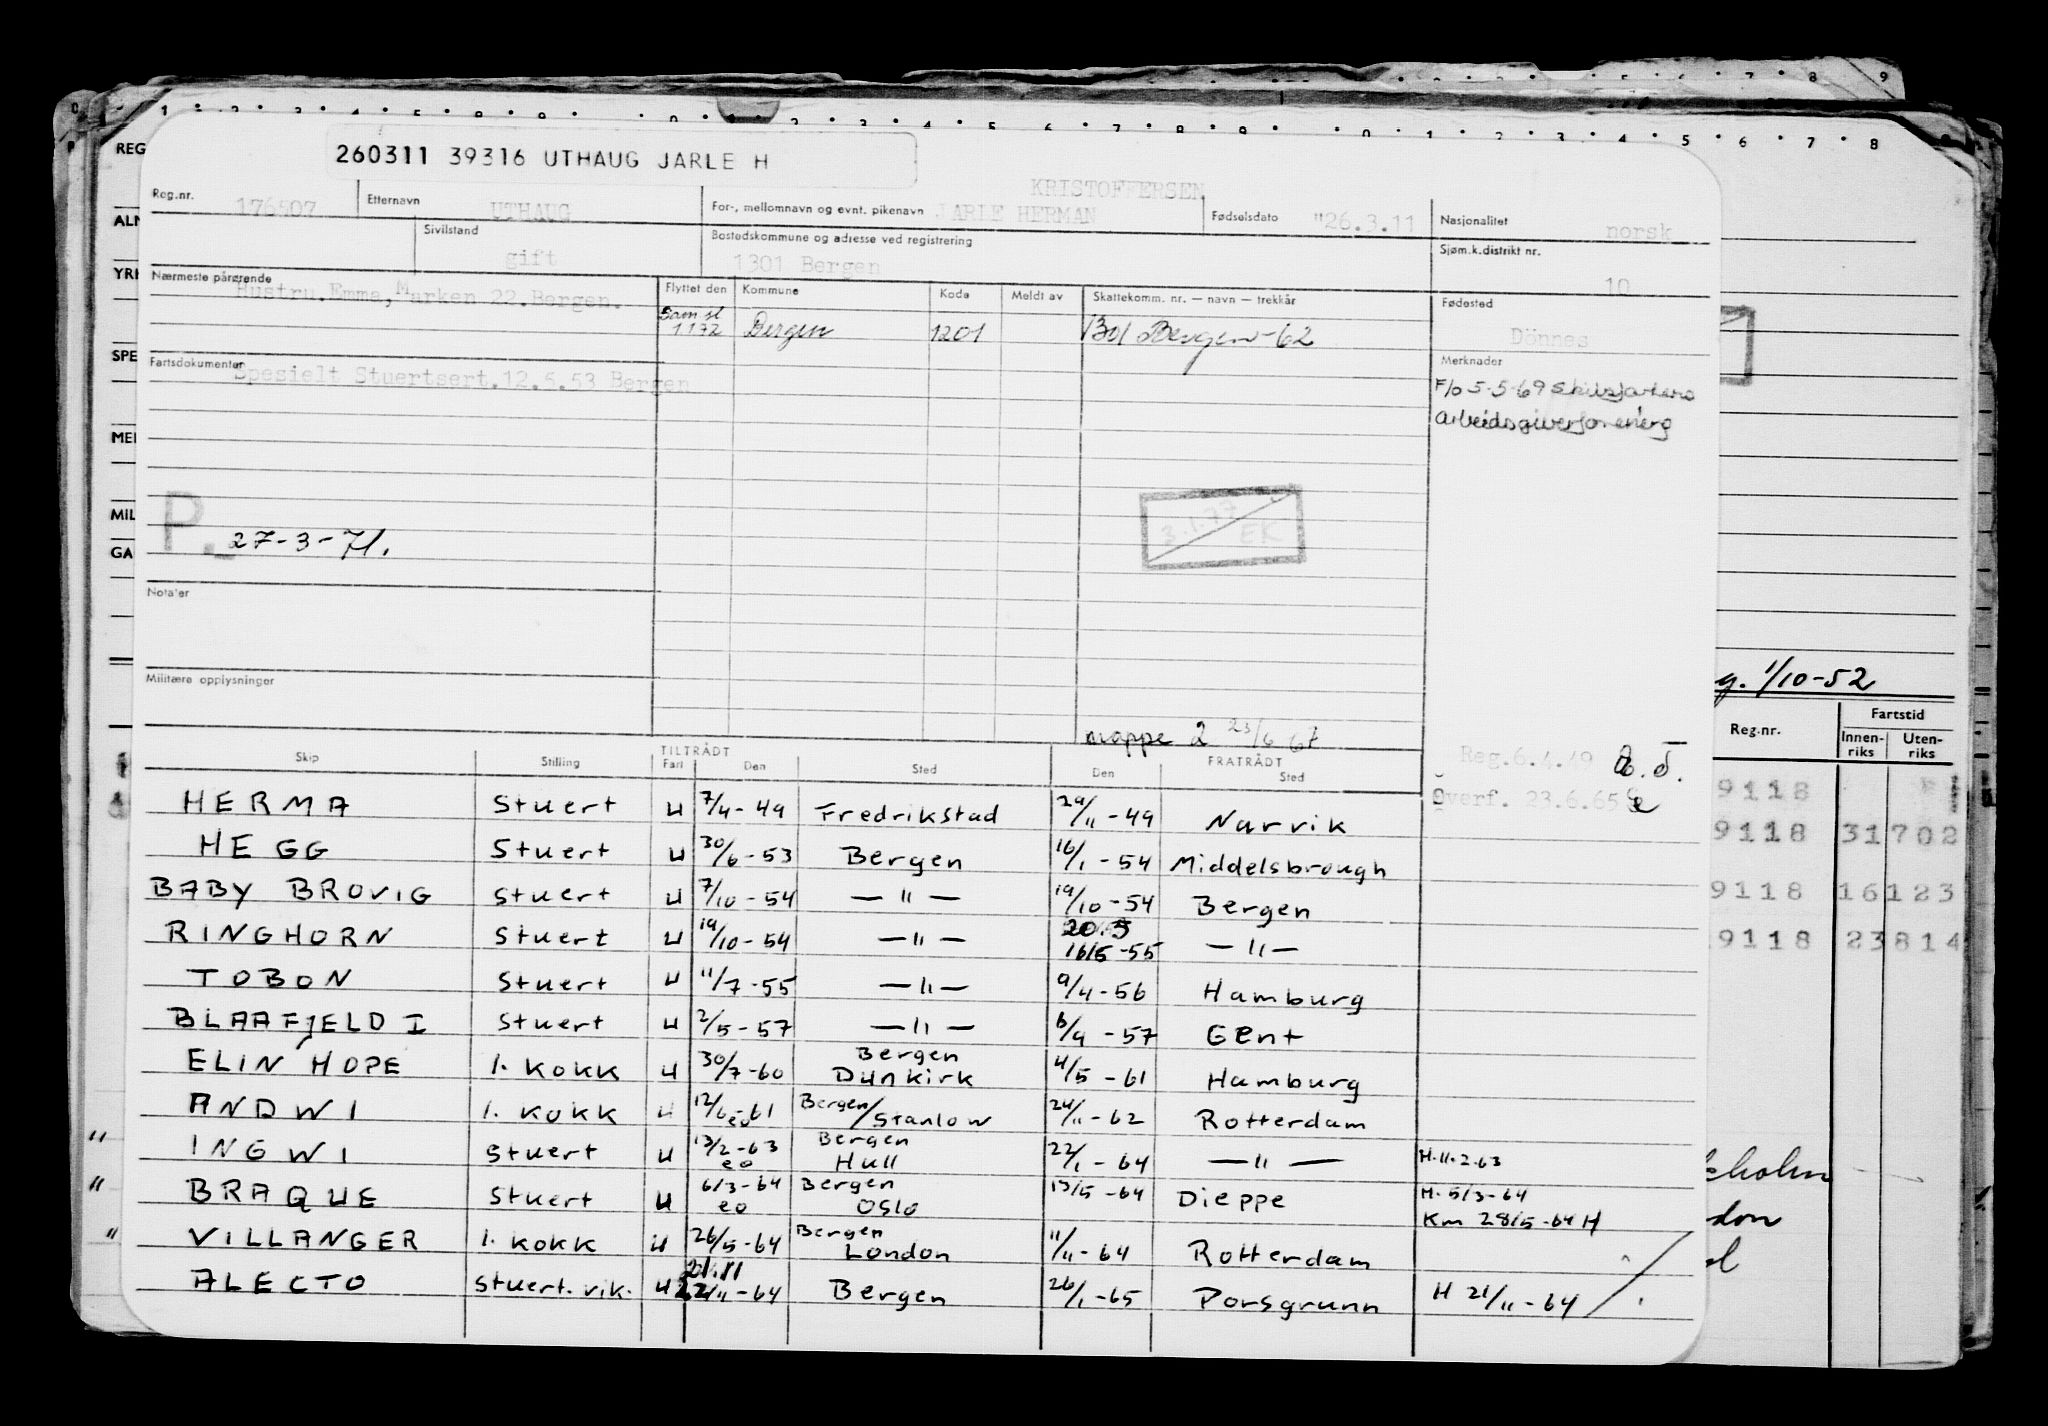 260311 39316 UTHAUG JARLE H
Reg.nr. 176507 Etternavn UTHAUG For-, mellomnavn og evnt. pikenavn KRISTOFFERSEN JARLE HERMAN Fødselsdato "26.3.11 Nasjonalitet norsk
Sivilstand gift Bostedskommune og adresse ved registrering 1301 Bergen Sjøm.k.distrikt nr. 10
Nærmeste pårørende Hustru.Emma, Marken 22.Bergen.
Flyttet den Kommune Kode Meldt av Skattekomm. nr. — navn — trekkår Fødested
Sam sl 1172 Bergen 1201 Bergen -62 Dönnes
Fartsdokumenter Spesielt Stuertsert.12.5.53 Bergen
Merknader
F/o 5-5-69 Skibsfartens
Arbeidsgiverforening
3.1.77 EK
P. 27-3-71.
Nota'er
Militære opplysninger
mappe 2 23/6 67
Reg.6.4.49
Overf. 23.6.65
Skip Stilling TILTRÅDT Fart Den Sted FRATRÅDT Den Sted
HERMA Stuert U 7/4-49 Fredrikstad 29/11-49 Narvik
HEGG Stuert U 30/6-53 Bergen 16/1-54 Middelsbrough
BABY BROVIG Stuert U 7/10-54 — " — 19/10-54 Bergen
RINGHORN Stuert U 19/10-54 — " — 20.5 16/5-55 — " —
TOBON Stuert U 11/7-55 — " — 9/4-56 Hamburg
BLAAFJELD I Stuert U 2/5-57 — " — 6/9-57 Gent
ELIN HOPE 1. KOKK U 30/7-60 Bergen Dunkirk 4/5-61 Hamburg
ANDWI 1. KOKK U 12/6-61 eo Bergen/Stanlow 24/11-62 Rotterdam
" INGWI Stuert U 13/2-63 eo Bergen Hull 22/1-64 — " — H.11.2.63
" BRAQUE Stuert U 6/3-64 eo Bergen Oslo 13/5-64 Dieppe H. 5/3-64
Km 28/5-64 H
" VILLANGER 1. KOKK U 26/5-64 Bergen London 11/11-64 Rotterdam
ALECTO Stuert. vik. U 21.11 22/11-64 Bergen 26/1-65 Porsgrunn H 21/11-64
REG
ALN
YRK
SPE
MEI
MIL
GA
g. 1/10-52
Reg.nr. Fartstid
Innenriks Utenriks
9118
9118 31702
9118 16123
9118 23814